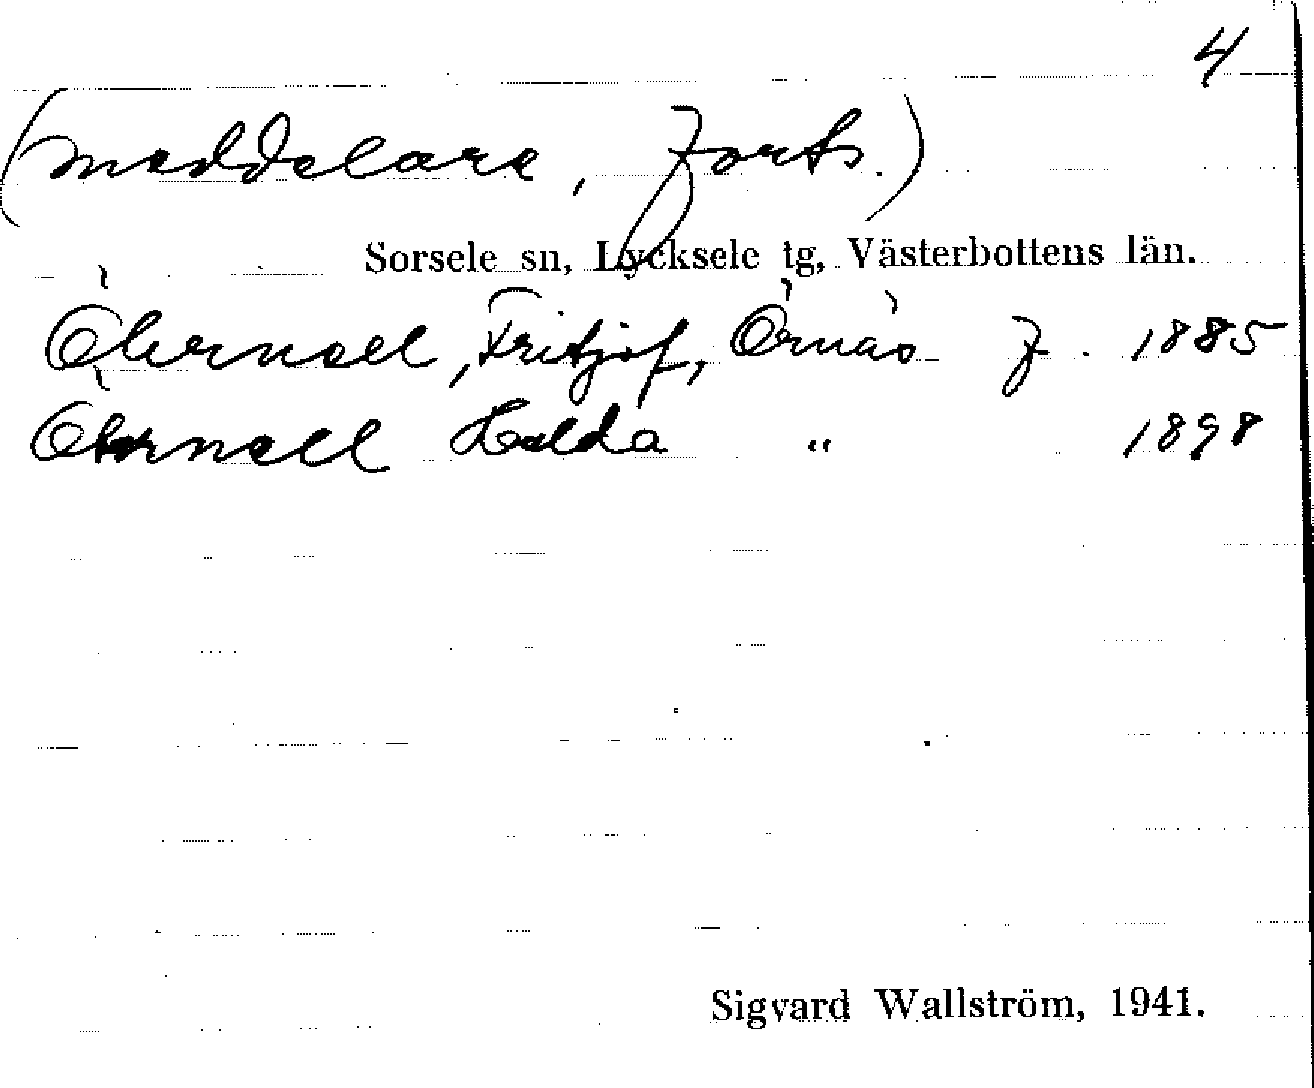 4
(meddelare, forts.)
Sorsele sn, Lycksele tg, Västerbottens län.
Öhrnell, Fritjof, Örnäs f. 1885
Öhrnell Hulda " 1898
Sigvard Wallström, 1941.